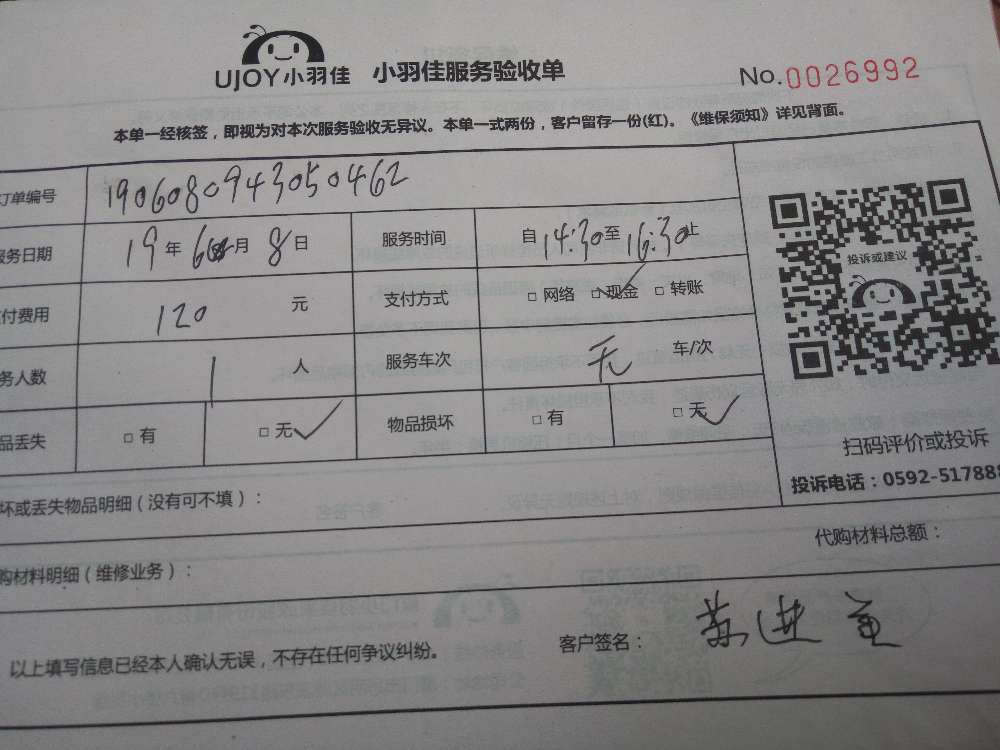 UJOY小羽佳 小羽佳服务验收单 No.0026992
本单一经核签，即视为对本次服务验收无异议。本单一式两份，客户留存一份(红)。《维保须知》详见背面。
订单编号 1906080943050462
服务日期 19年 6月 8日 服务时间 自14:30至16:30止
付费用 120 元 支付方式 □ 网络 □ 现金 □ 转账
务人数 1 人 服务车次 无 车/次
品丢失 □ 有 □ 无 物品损坏 □ 有 □ 无
投诉或建议
扫码评价或投诉
投诉电话：0592-517888
坏或丢失物品明细（没有可不填）：
代购材料总额：
购材料明细（维修业务）：
以上填写信息已经本人确认无误，不存在任何争议纠纷。 客户签名： 苏进